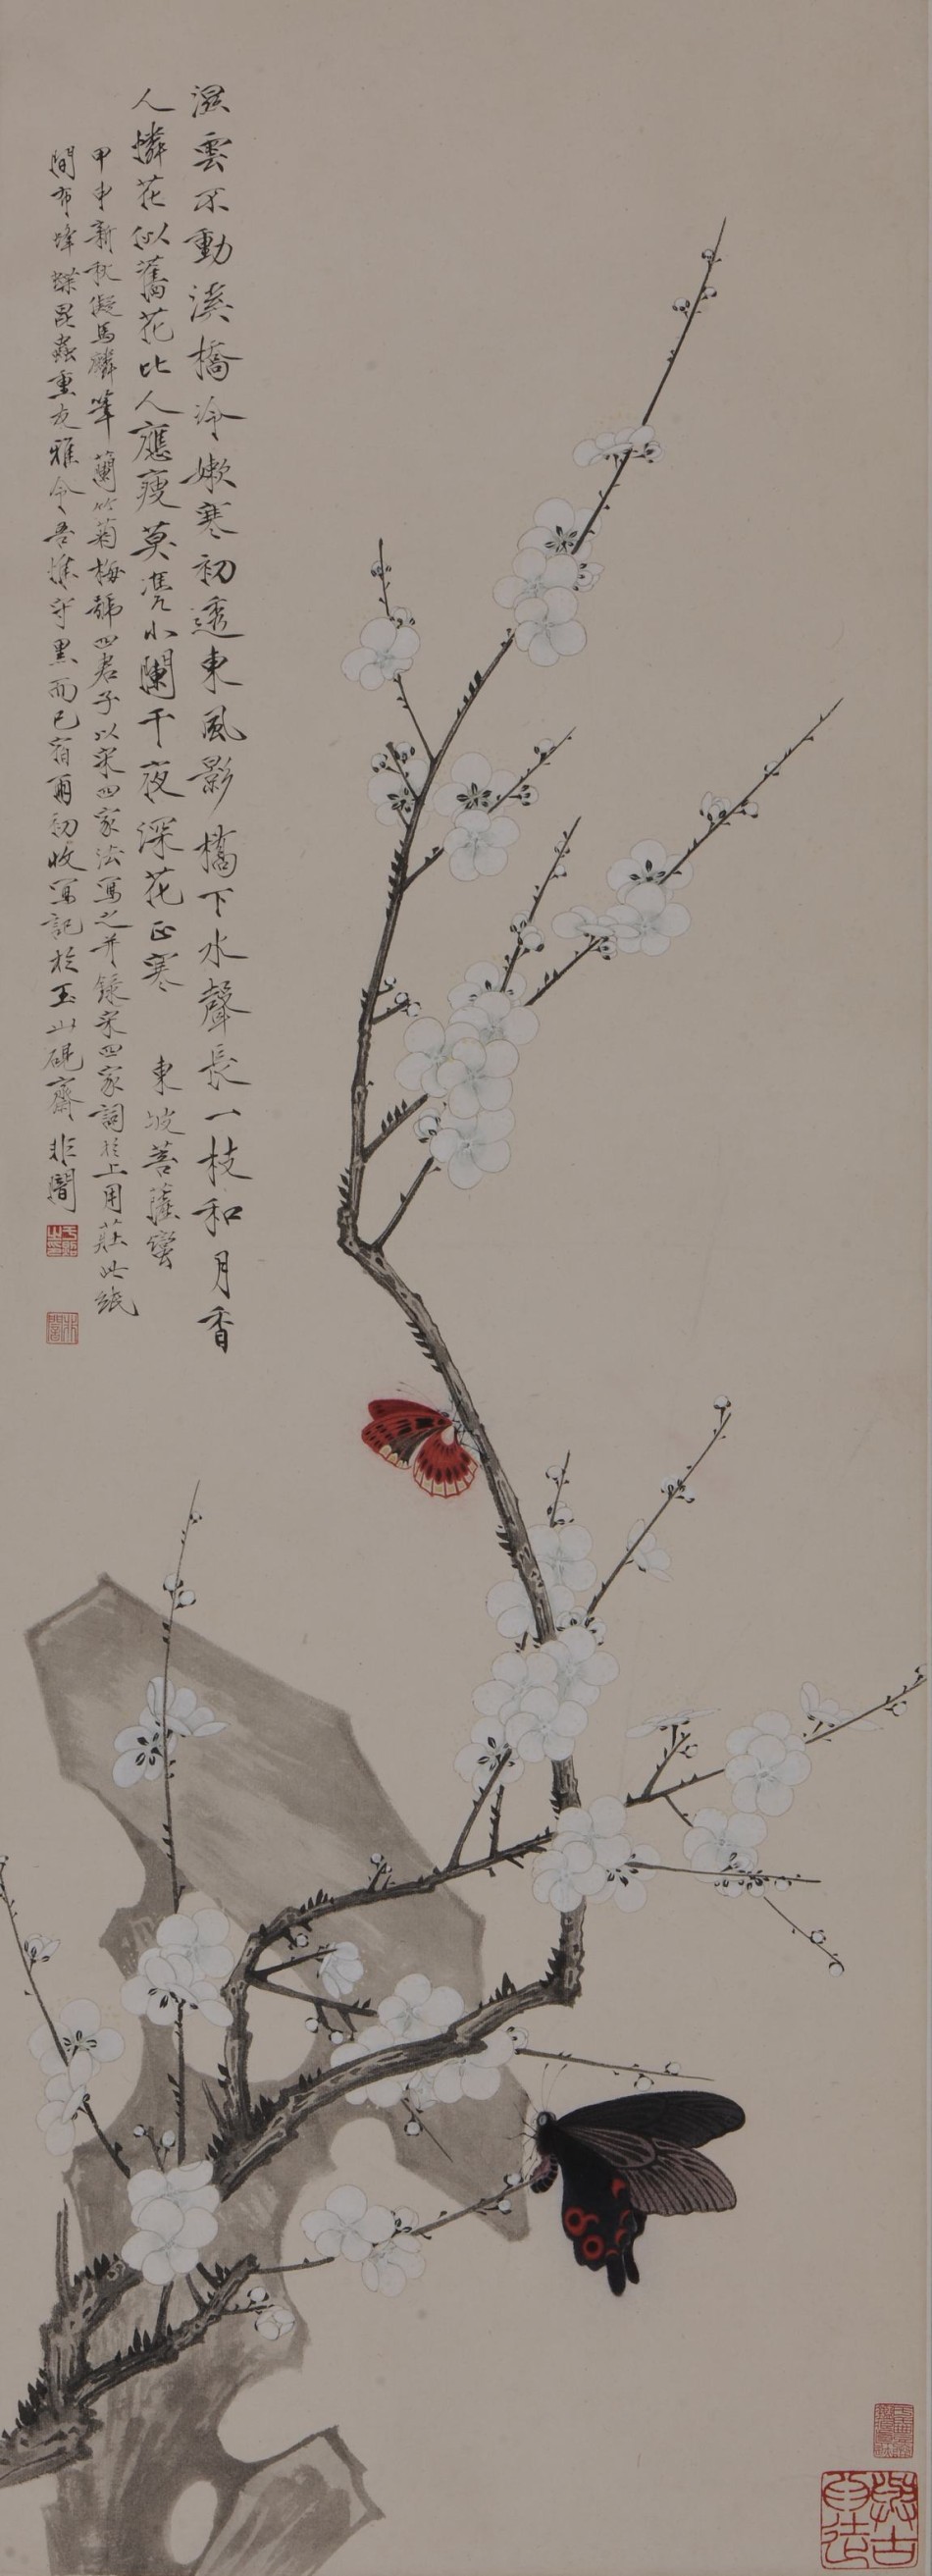 濕雲不動溪橋冷嫩寒初透東風影橋下水聲長一枝和月香
人憐花似舊花比人應瘦莫凭小闌干夜深花正寒 東坡菩薩蠻
甲申新秋儗馬麟筆 蘭竹菊梅號四君子以宋四家法寫之并錄宋四家詞於上用莊此紙
間布蜂蝶昆蟲重友雅令吾惟守黑而已宿雨初收寫記於玉山硯齋 非闇